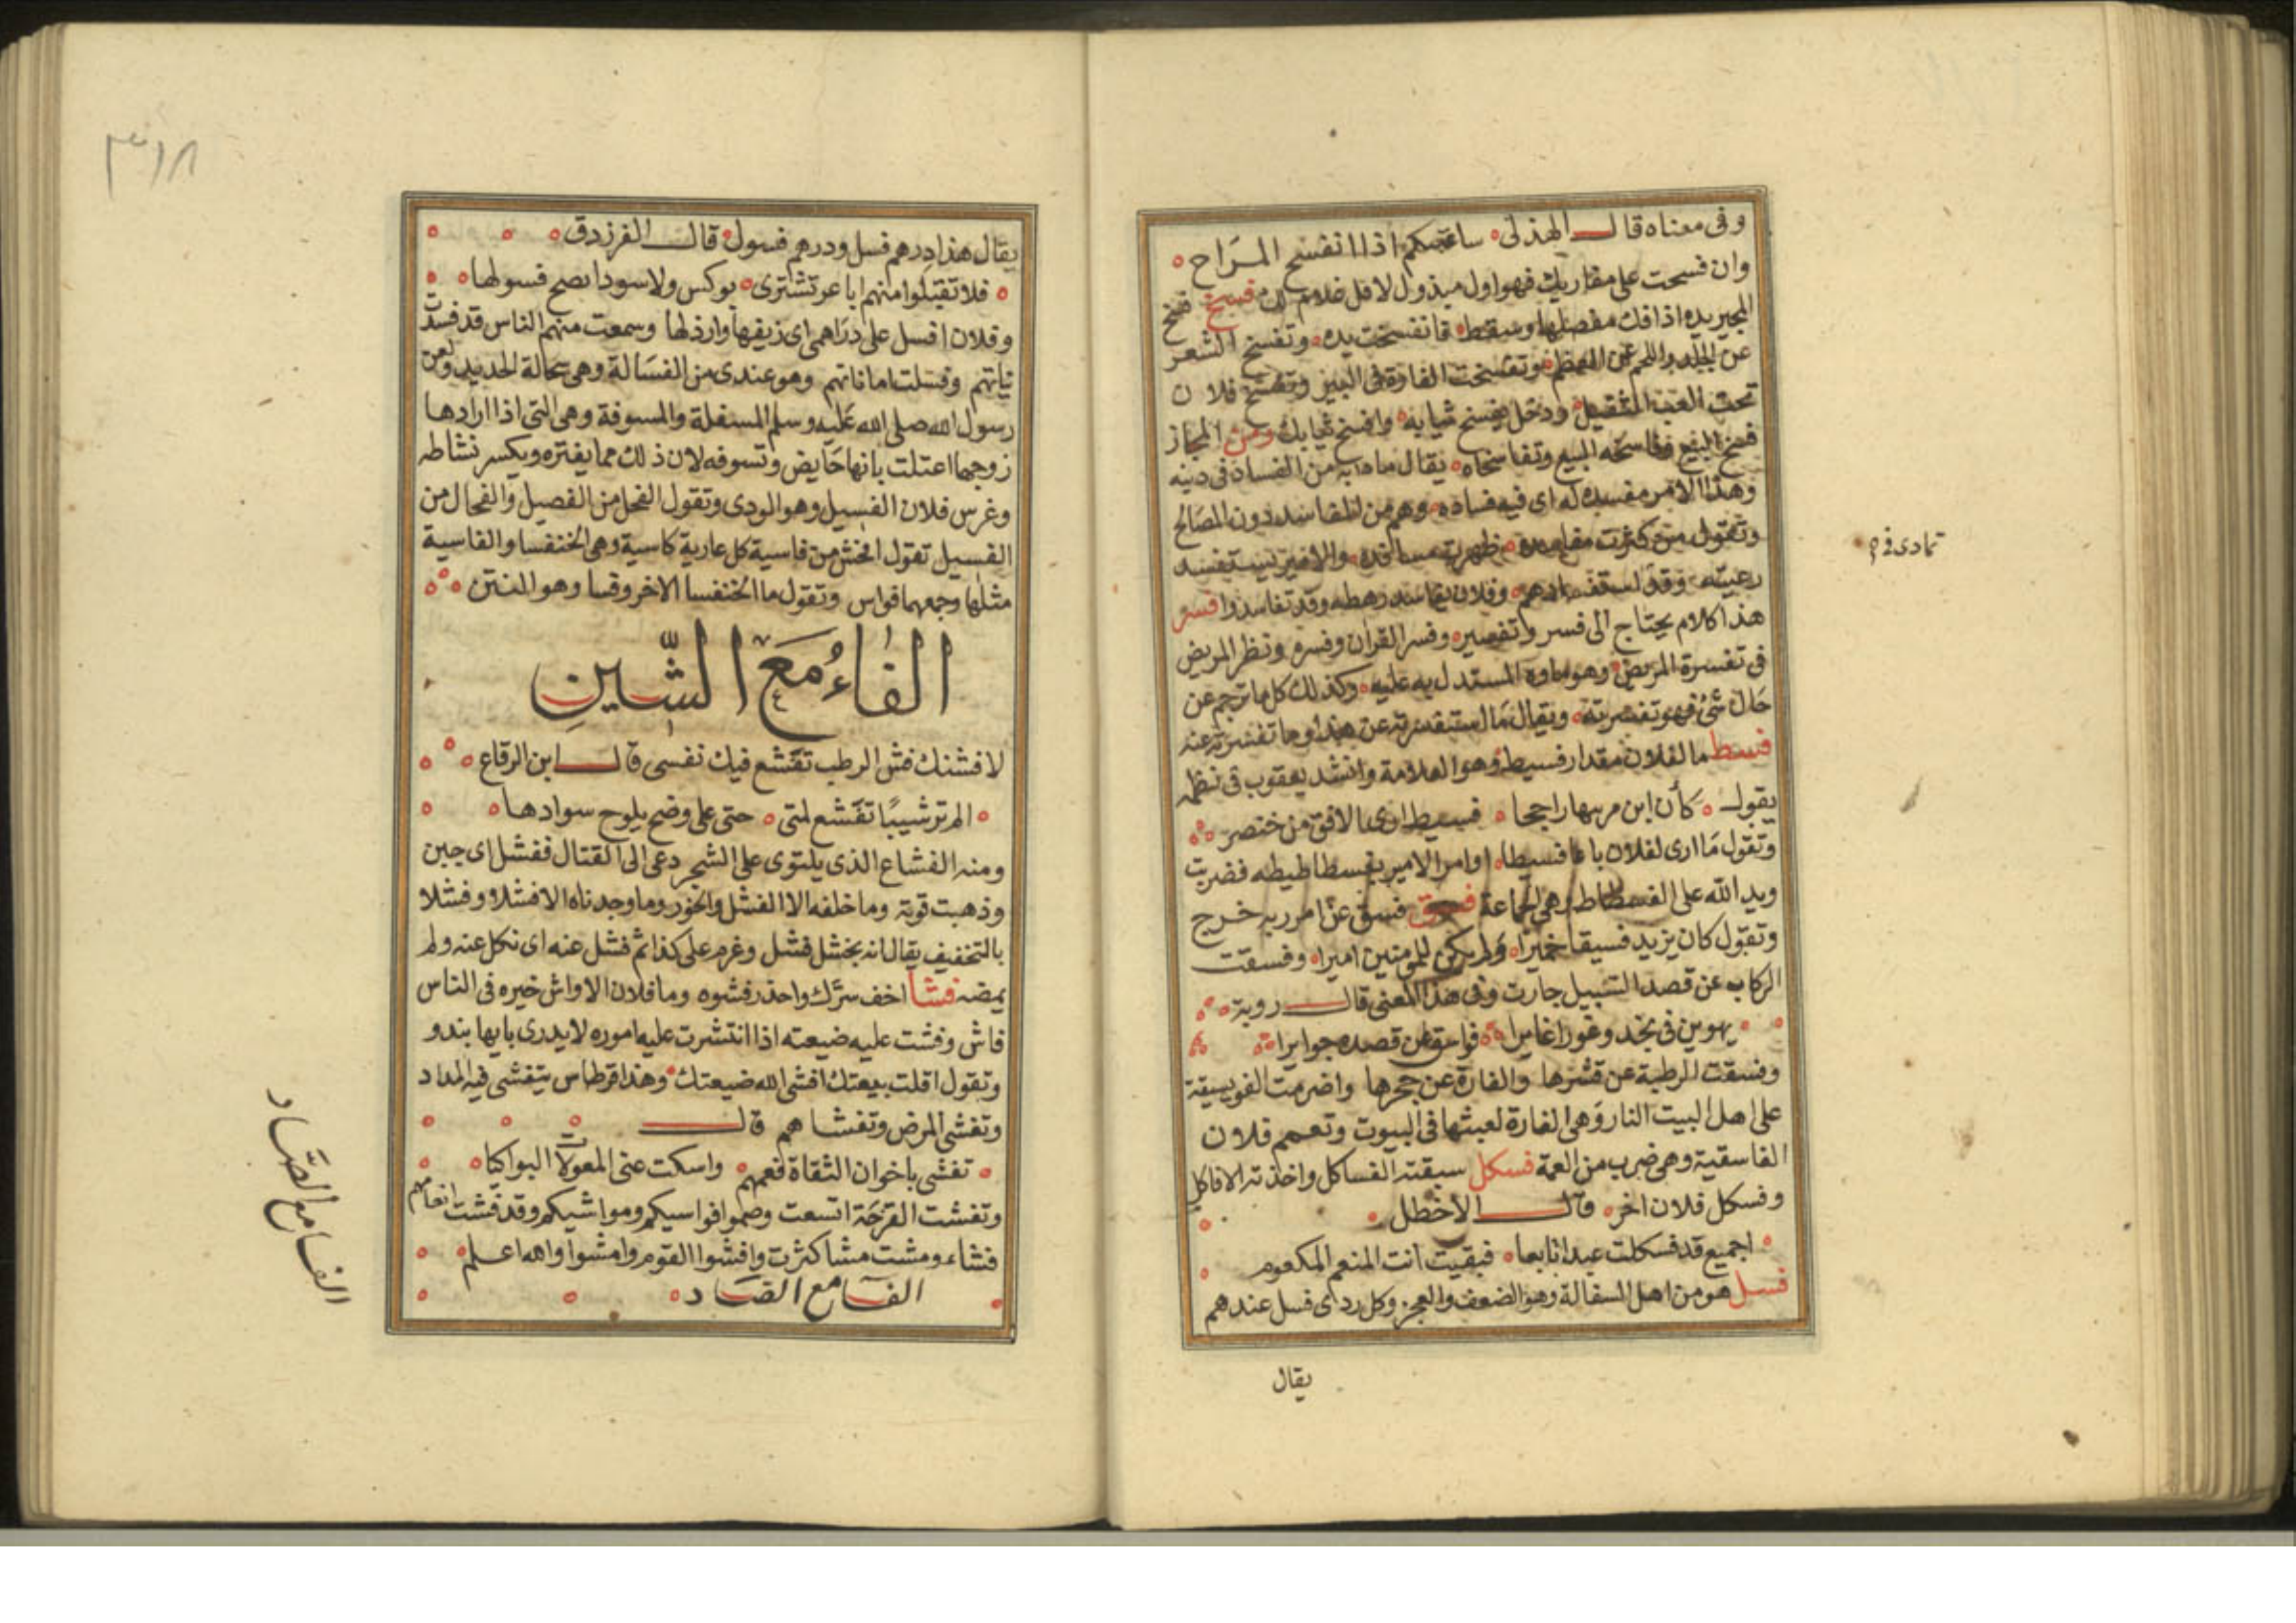 وفى معناه قال الهذلى ساغنيكم اذا انفسح المراح
وان فسحت على مقاربك فهو اول مبذول لاقل غلام لك فسخ فسخ
المجبر يده اذا فك مفصلها وسقط فانفسخت يده وتفسخ الشعر
عن الجلد واللحم عن العظم وتفسخت الفارة فى البير وتفسخ فلان
تحت العبء الثقيل ودخل يفسخ ثيابه وافسخ ثيابك ومن المجاز
فسخ البيع وفاسخه البيع وتفاسخاه يقال ما دابه من الفساد فى دينه
وهذا الامر مفسدة له اى فيه فساده وهم من المفاسد دون المصالح
وتقول من كثرت مفاسده ظهرت مسافده والامير يستفسد
رعيته وقد استفسدهم وفلان يفاسد رهطه وقد تفاسدوا فسر
هذا كلام يحتاج الى فسر وتفسير وفسر القران وفسره ونظر المريض
فى تفسرة المريض وهو ماوه المستدل به عليه وكذلك كل ما ترجم عن
حال شئ فهو تفسرته ويقال ما استفسرته عن هذا وما تفسرته عنه
فسط ما لفلان مقدار فسيط وهو العلامة وانشد يعقوب فى نظم
يقول كأن ابن مرنها راجحا فسيط لدى الافق من خنصر
وتقول ما ارى لفلان باعا فسيطا وامر الامير بفسطاطيطه فضربت
ويد الله على الفسطاط وهى الجماعة فسق فسق عن امر ربه خرج
وتقول كان يزيد فسيقا خميرا ولم يكن للمومنين اميرا وفسقت
الركاب عن قصد السبيل جارت وفى هذا المعنى قال روبة
يهوين فى نجد وغورا غايرا فواسقا عن قصده جوايرا
وفسقت الرطبة عن قشرها والفارة عن جحرها واضرمت الفويسقة
على اهل البيت النار وهى الفارة لعبثها فى البيوت وتعمم فلان
الفاسقية وهى ضرب من العمة فسكل سبقته الفساكل واخذته الافاكل
وفسكل فلان اخر قال الاخطل
اجميع قد فسكلت عبدا تابعا فبقيت انت المنعم المكعوم
فسل هو من اهل السفالة وهو الضعف والعجز وكل ردى فسل عندهم
يقال
تمادى فى
٣١٨
يقال هذا درهم فسل ودرهم فسول قال الفرزدق
فلا تقبلوا منهم اباعر تشترى بوكس ولا سودا يصح فسولها
وفلان افسل على دراهمى اى زيفها وارذلها وسمعت منهم الناس قد فسدت
نياتهم وفسلت اماناتهم وهو عندى من الفسالة وهى سحالة الحديد ولعن
رسول الله صلى الله عليه وسلم المسفلة والمسوفة وهى التى اذا ارادها
زوجها اعتلت بانها حايض وتسوفه لان ذلك مما يفتره ويكسر نشاطه
وغرس فلان الفسيل وهو الودى وتقول الفحل من الفصيل والفحال من
الفسيل تقول افحش من فاسية كل عارية كاسية وهى الخنفسا والفاسية
مثلها وجمعهما فواس وتقول ما الخنفسا الاخر وفسا وهو المنتن
الفاء مع الشين
لافشنك فش الرطب تقشع فيك نفسى قال ابن الرقاع
الم تر شيبا تفشع لمتى حتى على وضح يلوح سوادها
ومنه الفشاع الذى يلتوى على الشجر دعى الى القتال ففشل اى جبن
وذهبت قوته وما خلفه الا الفشل والخور وما وجدناه الا فشلا وفشلا
بالتخفيف يقال انه بخشل فشل وغرم على كذا ثم فشل عنه اى نكل عنه ولم
يمضه فشا اخف سرك واحذر فشوه وما فلان الاواش خيره فى الناس
فاش وفشت عليه ضيعته اذا انتشرت عليه اموره لا يدرى بايها يبدو
وتقول اقلت بيعتك افشى الله ضيعتك وهذا قرطاس يتفشى فيه المداد
وتفشى المرض وتفشاهم قال
تفشى باخوان الثقاة فعمهم واسكت عنى المعولات البواكيا
وتفشت القرحة اتسعت وضموا فواشيكم ومواشيكم وقد فشت انعامهم
فشاء ومشت مشا كثرت وافشوا القوم وامشوا والله اعلم
الفا مع الصاد
الفا مع الصاد